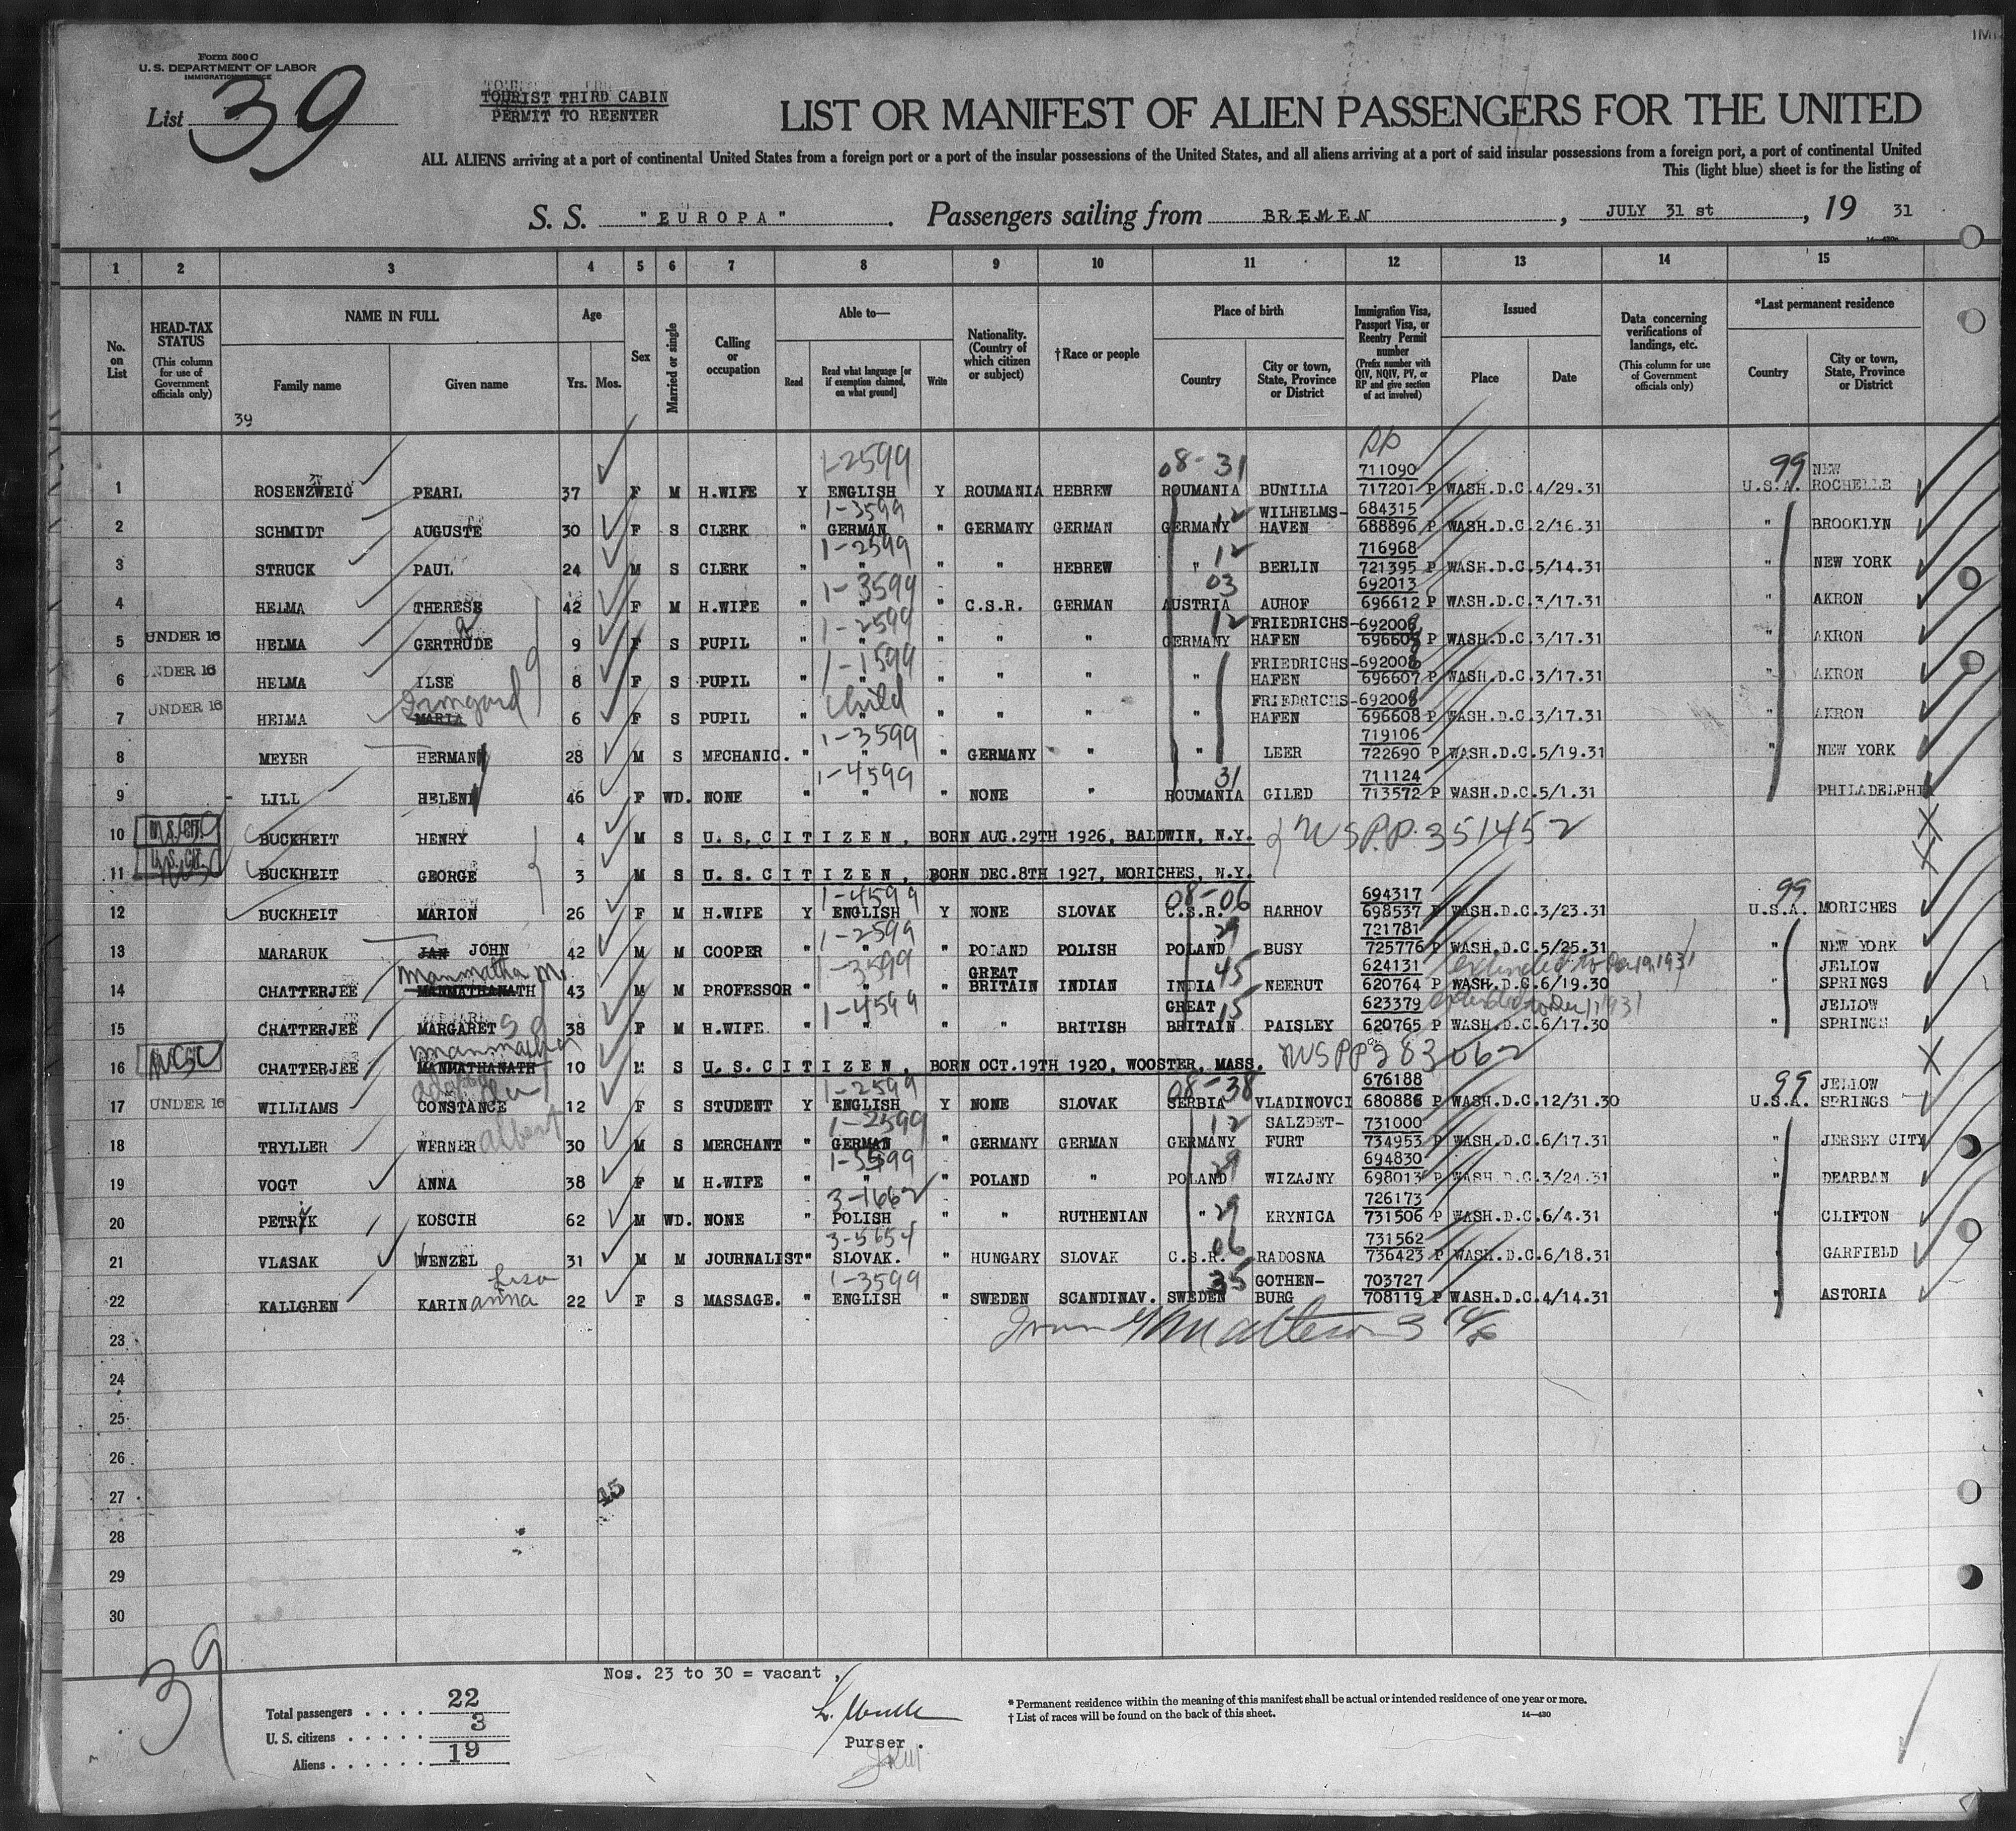 Form 500 C
U. S. DEPARTMENT OF LABOR
IMMIGRATION SERVICE
List 39
TOURIST THIRD CABIN
PERMIT TO REENTER
LIST OR MANIFEST OF ALIEN PASSENGERS FOR THE UNITED
ALL ALIENS arriving at a port of continental United States from a foreign port or a port of the insular possessions of the United States, and all aliens arriving at a port of said insular possessions from a foreign port, a port of continental United
This (light blue) sheet is for the listing of
S. S. "EUROPA". Passengers sailing from BREMEN, JULY 31 st, 19 31
1 2 3 4 5 6 7 8 9 10 11 12 13 14 15
No. on List
HEAD-TAX STATUS (This column for use of Government officials only)
NAME IN FULL Family name Given name
Age Yrs. Mos.
Sex
Married or single
Calling or occupation
Able to— Read Read what language [or if exemption claimed, on what ground] Write
Nationality. (Country of which citizen or subject)
†Race or people
Place of birth Country City or town, State, Province or District
Immigration Visa, Passport Visa, or Reentry Permit number (Prefix number with QIV, NQIV, PV, or RP and give section of act involved)
Issued Place Date
Data concerning verifications of landings, etc. (This column for use of Government officials only)
*Last permanent residence Country City or town, State, Province or District
39
1-2599 08-31 RP 711090 99 NEW
1 ROSENZWEIG PEARL 37 F M H.WIFE Y ENGLISH Y ROUMANIA HEBREW ROUMANIA BUNILLA 717201 P WASH.D.C. 4/29.31 U.S.A. ROCHELLE
1-3599 12 WILHELMS- 684315
2 SCHMIDT AUGUSTE 30 F S CLERK " GERMAN " GERMANY GERMAN GERMANY HAVEN 688896 P WASH.D.C. 2/16.31 " BROOKLYN
1-2599 12 716968
3 STRUCK PAUL 24 M S CLERK " " " " HEBREW " BERLIN 721395 P WASH.D.C. 5/14.31 " NEW YORK
1-3599 03 692013
4 HELMA THERESE 42 F M H.WIFE " " " C.S.R. GERMAN AUSTRIA AUHOF 696612 P WASH.D.C. 3/17.31 " AKRON
1-2599 12 FRIEDRICHS-
5 UNDER 16 HELMA GERTRUDE 9 F S PUPIL " " " " " GERMANY HAFEN P WASH.D.C. 3/17.31 " AKRON
1-1599 FRIEDRICHS-
6 UNDER 16 HELMA ILSE 8 F S PUPIL " " " " " " HAFEN 696607 P WASH.D.C. 3/17.31 " AKRON
Irmgard child FRIEDRICHS-
7 UNDER 16 HELMA MARIA 6 F S PUPIL " " " " " " HAFEN 696608 P WASH.D.C. 3/17.31 " AKRON
1-3599 719106
8 MEYER HERMAN 28 M S MECHANIC. " " " GERMANY " " LEER 722690 P WASH.D.C. 5/19.31 " NEW YORK
1-4599 31 711124
9 LILL HELEN 46 F WD. NONE " " " NONE " ROUMANIA GILED 713572 P WASH.D.C. 5/1.31 PHILADELPHIA
10 BUCKHEIT HENRY 4 M S U.S.CITIZEN, BORN AUG.29TH 1926, BALDWIN, N.Y. USPP. 351452
11 BUCKHEIT GEORGE 3 M S U.S.CITIZEN, BORN DEC.8TH 1927, MORICHES, N.Y.
1-4599 08-06 694317 99
12 BUCKHEIT MARION 26 F M H.WIFE Y ENGLISH Y NONE SLOVAK C.S.R. HARHOV 698537 P WASH.D.C. 3/23.31 U.S.A. MORICHES
1-2599 29 721781
13 MARARUK JAN JOHN 42 M M COOPER " " " POLAND POLISH POLAND BUSY 725776 P WASH.D.C. 5/25.31 " NEW YORK
Manmatha 1-3599 GREAT 45 624131 extended to Dec 19, 1931 JELLOW
14 CHATTERJEE MANMATHANATH 43 M M PROFESSOR " " " BRITAIN INDIAN INDIA NEERUT 620764 P WASH.D.C. 6/19.30 " SPRINGS
1-4599 GREAT 15 623379 JELLOW
15 CHATTERJEE MARGARET 38 F M H.WIFE " " " " BRITISH BRITAIN PAISLEY 620765 P WASH.D.C. 6/17.30 " SPRINGS
Manmatha
16 CHATTERJEE MANMATHANATH 10 M S U.S.CITIZEN, BORN OCT.19TH 1920, WOOSTER, MASS. USPP 283062
1-2599 08-38 676188 99 JELLOW
17 UNDER 16 WILLIAMS CONSTANCE 12 F S STUDENT Y ENGLISH Y NONE SLOVAK SERBIA VLADINOVCI 680886 P WASH.D.C. 12/31.30 U.S.A. SPRINGS
1-2599 12 SALZDET- 731000
18 TRYLLER WERNER albert 30 M S MERCHANT " GERMAN " GERMANY GERMAN GERMANY FURT 734953 P WASH.D.C. 6/17.31 " JERSEY CITY
1-3599 29 694830
19 VOGT ANNA 38 F M H.WIFE " " " POLAND " POLAND WIZAJNY 698013 P WASH.D.C. 3/24.31 " DEARBAN
3-1662 29 726173
20 PETRYK KOSCIH 62 M WD. NONE " POLISH " " RUTHENIAN " KRYNICA 731506 P WASH.D.C. 6/4.31 " CLIFTON
3-5654 06 731562
21 VLASAK WENZEL 31 M M JOURNALIST " SLOVAK. " HUNGARY SLOVAK C.S.R. RADOSNA 736423 P WASH.D.C. 6/18.31 " GARFIELD
1-3599 35 GOTHEN- 703727
22 KALLGREN KARIN anna 22 F S MASSAGE. " ENGLISH " SWEDEN SCANDINAV. SWEDEN BURG 708119 P WASH.D.C. 4/14.31 " ASTORIA
23
24
25
26
27 45
28
29
30
39
Nos. 23 to 30 = vacant,
Total passengers . . . . 22
U. S. citizens . . . . . 3
Aliens . . . . . . 19
Purser.
* Permanent residence within the meaning of this manifest shall be actual or intended residence of one year or more.
† List of races will be found on the back of this sheet.
14—430